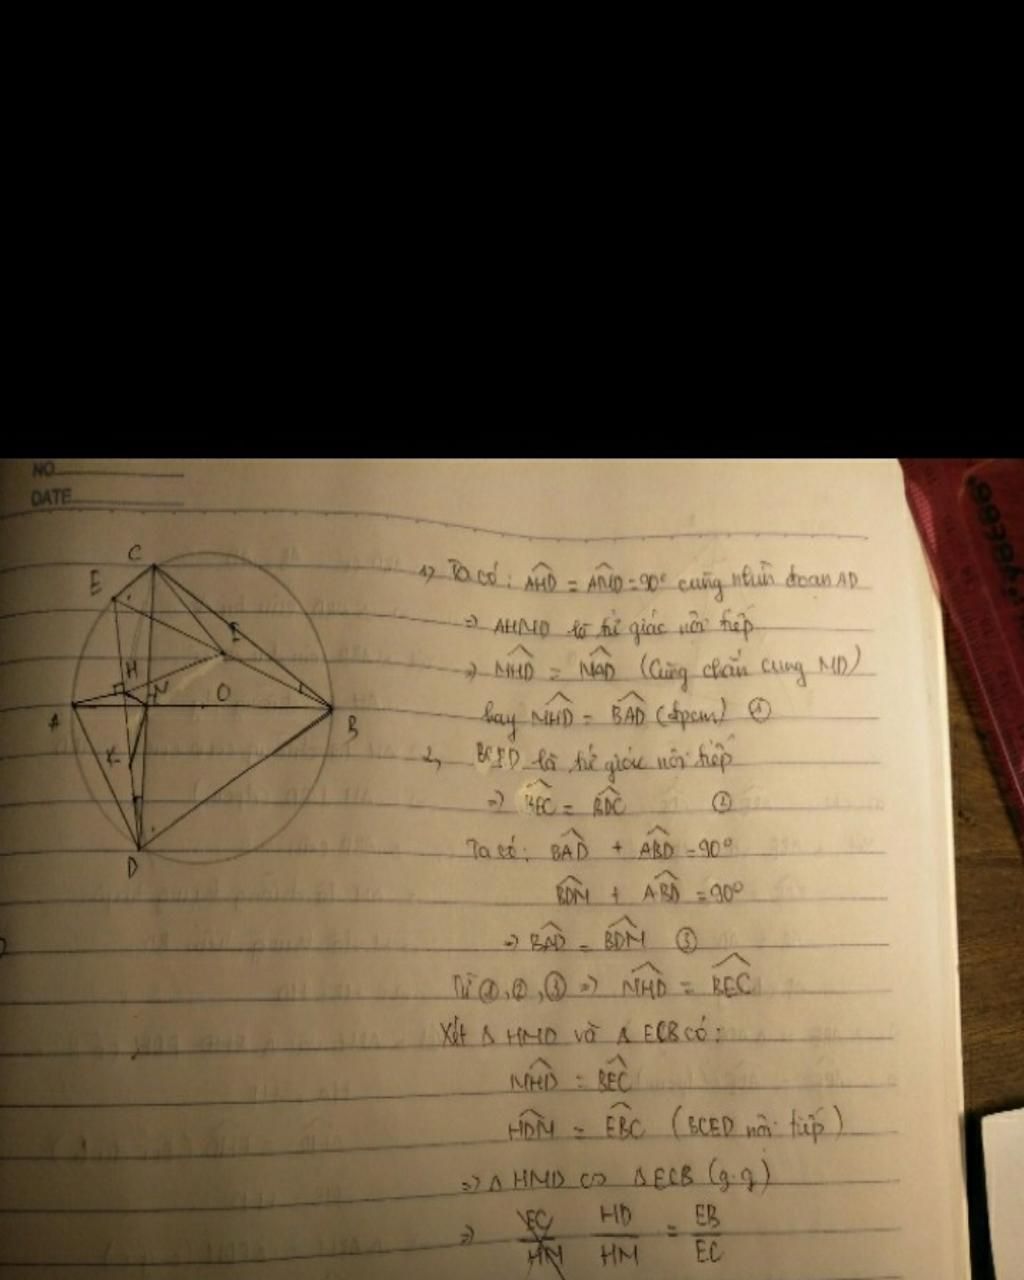 NO
DATE
C
E
I
H
N
O
A
B
K
D
1) Ta có: AHD = AMD = 90° cùng nhìn đoạn AD
=> AHMD là tứ giác nội tiếp
=> MHD = MAD (Cùng chắn cung MD)
hay MHD = BAD (đpcm) ①
2, BCED là tứ giác nội tiếp
=> BEC = BDC ②
Ta có: BAD + ABD = 90°
BDM + ABD = 90°
=> BAD = BDM ③
Từ ①, ②, ③ => MHD = BEC
Xét Δ HMD và Δ ECB có:
MHD = BEC
HDM = EBC (BCED nội tiếp)
=> Δ HMD ∽ Δ ECB (g.g)
=> EC/HM HD/HM = EB/EC